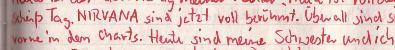 Tag, NIRVANA sind jetzt voll berühmt. Überall sind s
vorne in dem Charts. Heute sind meine Schwester und ich